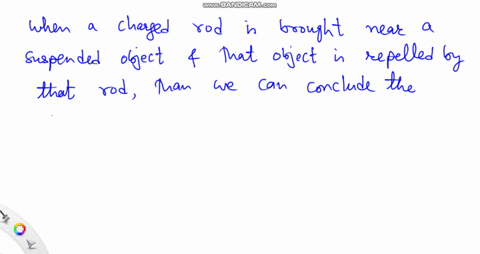 www.BANDICAM.com
When a charged rod is brought near a
suspended object & that object is repelled by
that rod, than we can conclude the